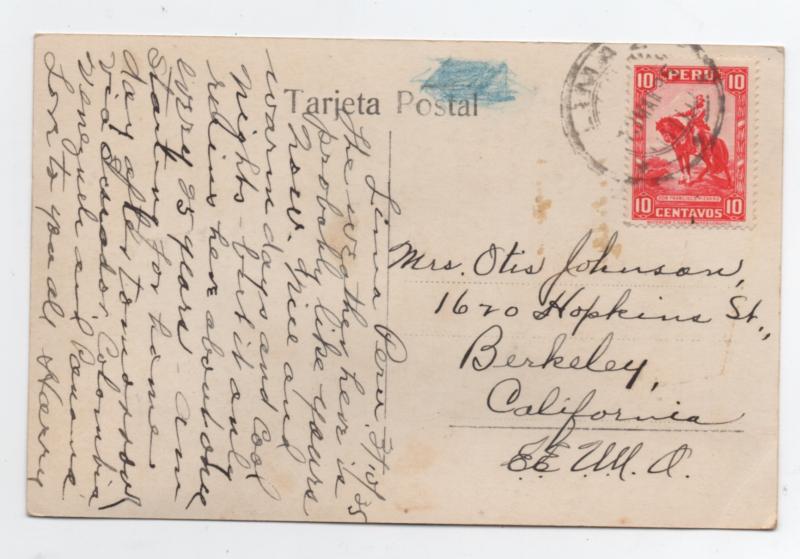 Tarjeta Postal
Lima Peru.
The weather here is
probably like yours
now. Fine and
warm days and cool
nights - but it only
rains here about once
every 25 years - am
Starting for home
day after tomorrow
via Ecuador, Colombia
Venezuela and Panama.
Love to you all Harry
LIMA
10 PERU 10
DON FRANCISCO PIZARRO
10 CENTAVOS 10
Mrs. Otis Johnson,
1620 Hopkins St.,
Berkeley,
California
EE. U.U. A.